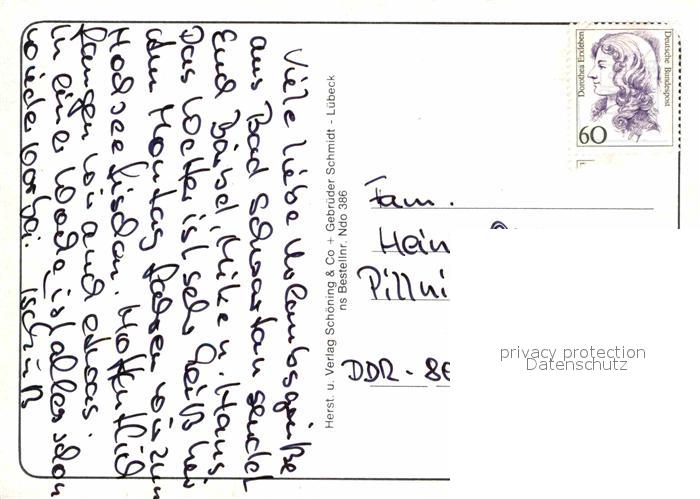 Viele liebe Urlaubsgrüße
aus Bad Schwartau sendet
Euch Bärbel, Mike u. Hans
Das Wetter ist sehr heiß hier
den Montag fahren wir zum
Hochseefischen. Hoffentlich
fangen wir auch etwas.
In einer Woche ist alles schon
wieder vorbei. Tschüß
Herst. u. Verlag Schöning & Co + Gebrüder Schmidt - Lübeck
ns Bestellnr. Ndo 386
Dorothea Erxleben
Deutsche Bundespost
60
Fam.
Hein
Pillni
DDR - 8
privacy protection
Datenschutz